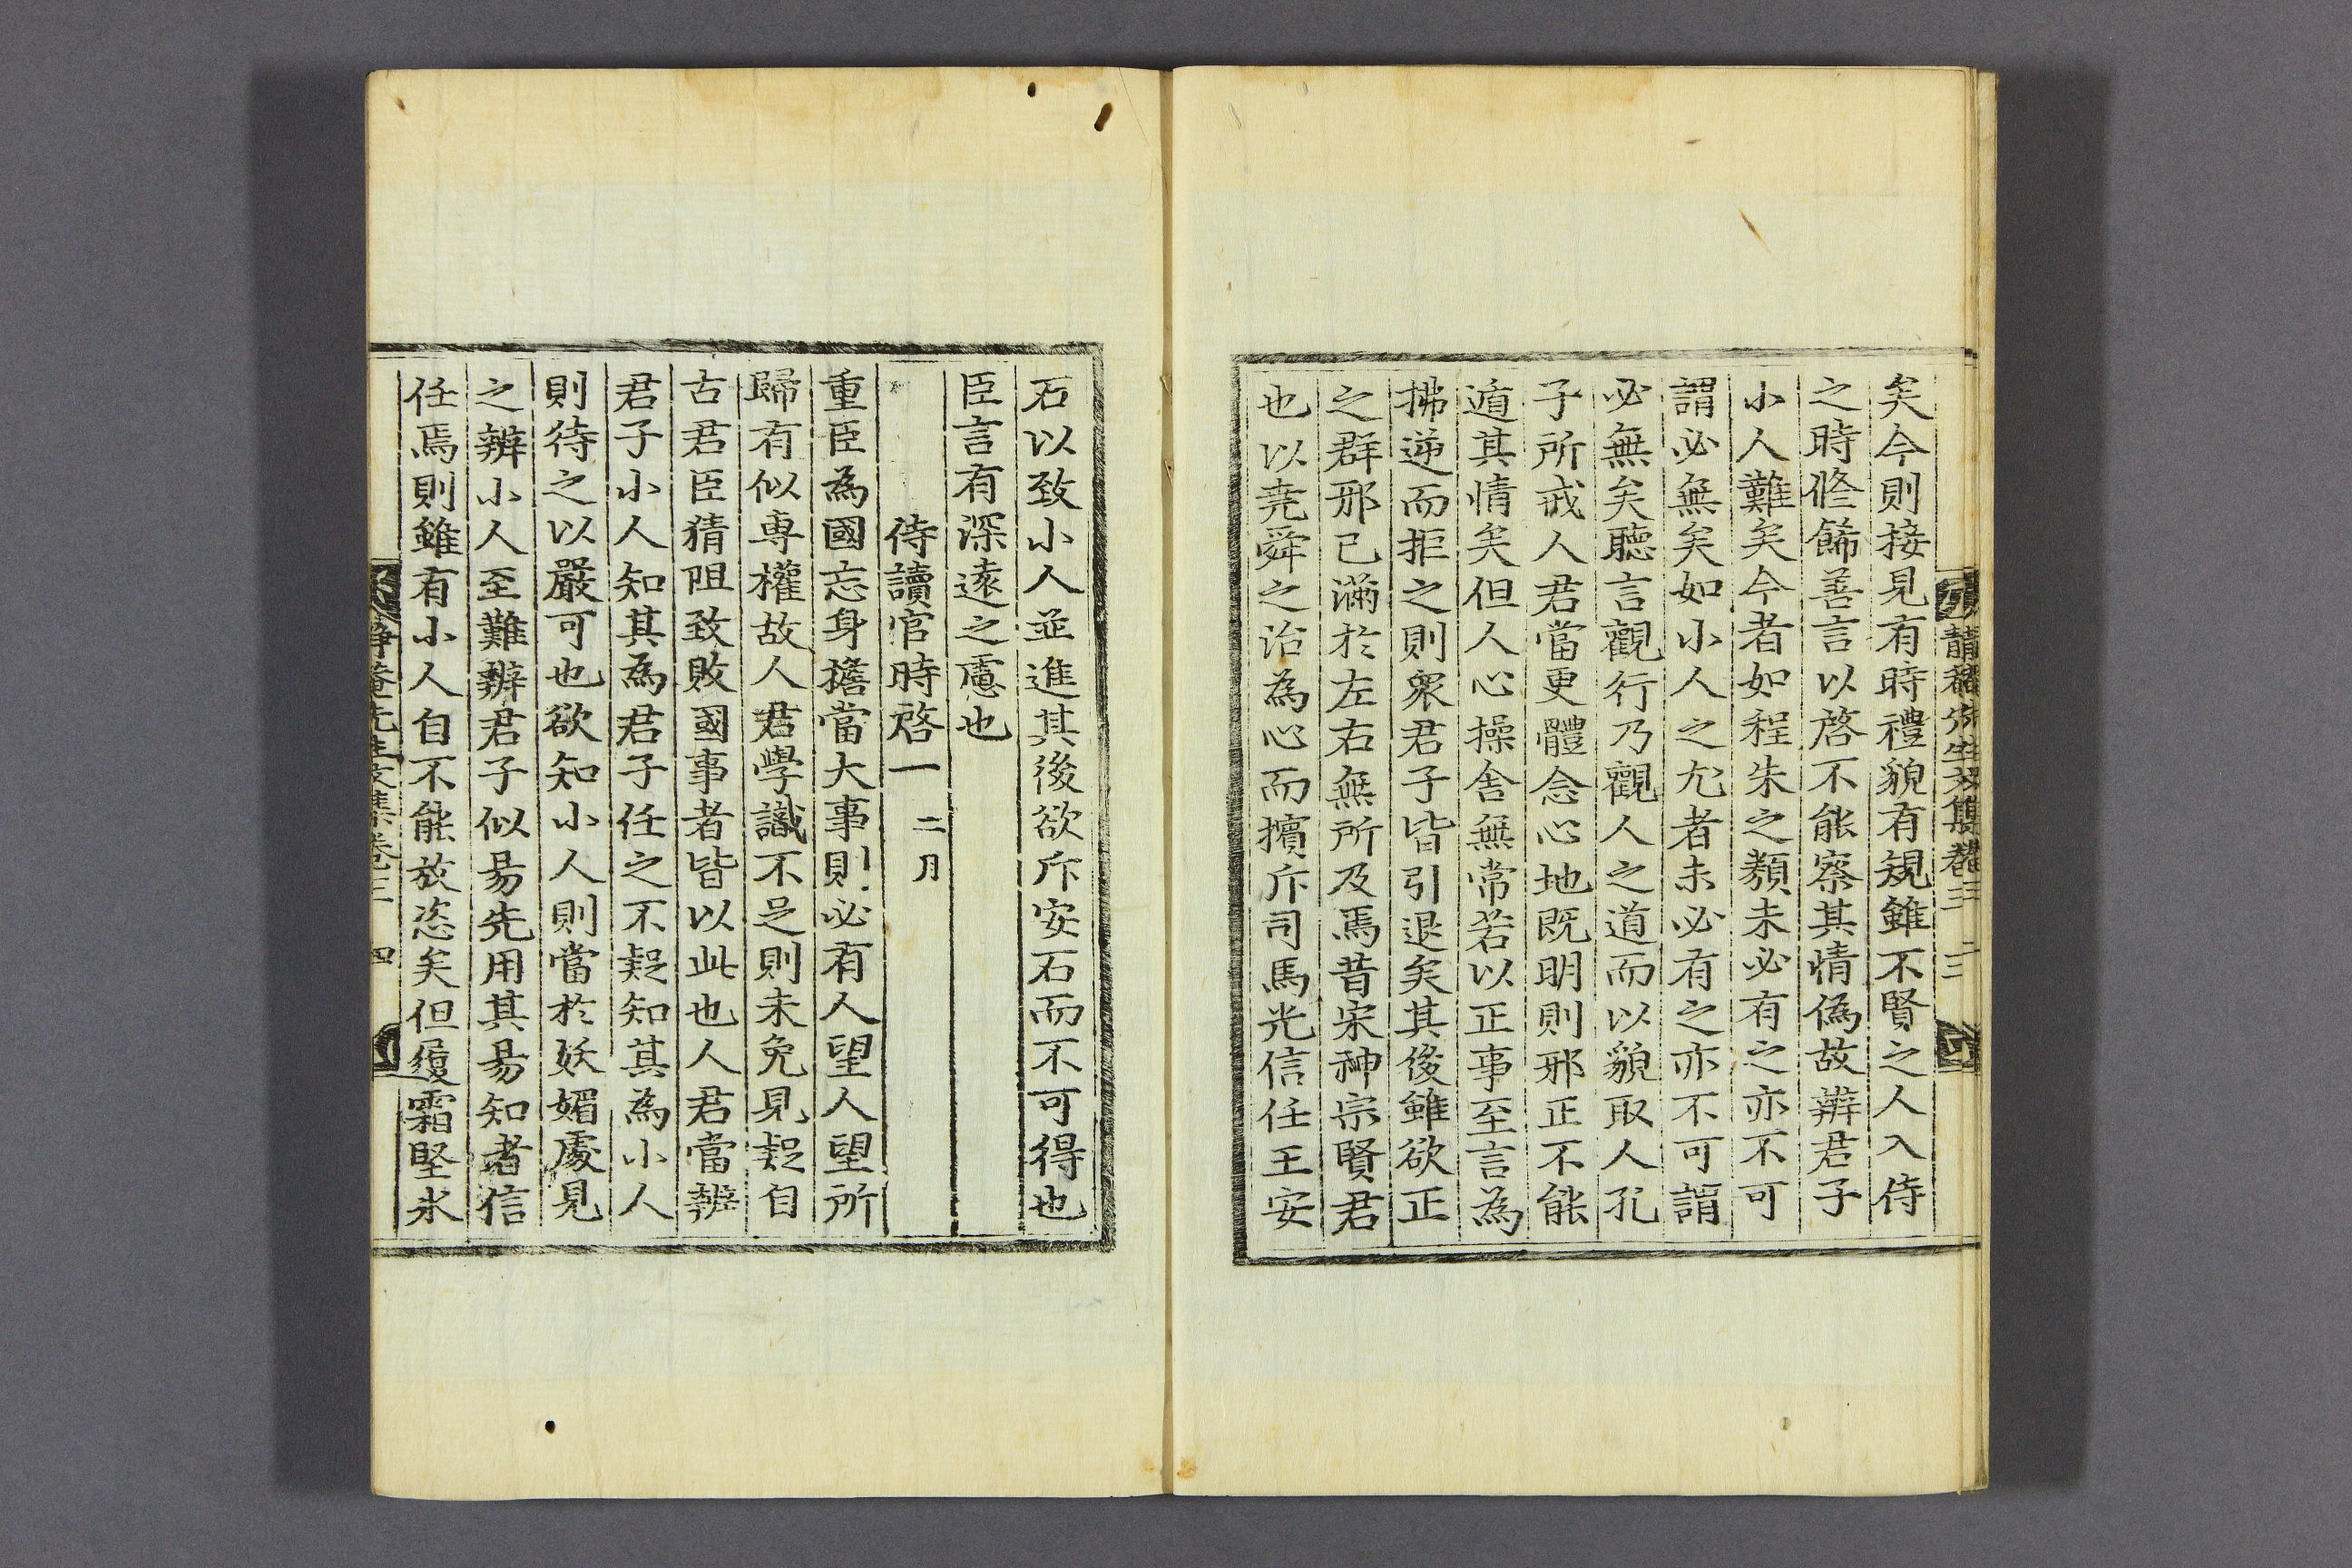 靜菴先生文集卷三 三
矣今則接見有時禮貌有規雖不賢之人入侍
之時修餙善言以啓不能察其情偽故辨君子
小人難矣今者如程朱之類未必有之亦不可
謂必無矣如小人之尤者未必有之亦不可謂
必無矣聽言觀行乃觀人之道而以貌取人孔
子所戒人君當更體念心地既明則邪正不能
遁其情矣但人心操舍無常若以正事至言為
拂逆而拒之則衆君子皆引退矣其後雖欲正
之群邪已滿於左右無所及焉昔宋神宗賢君
也以堯舜之治為心而擯斥司馬光信任王安
石以致小人並進其後欲斥安石而不可得也
臣言有深遠之慮也
侍讀官時啓一 二月
重臣為國忘身擔當大事則必有人望人望所
歸有似專權故人君學識不足則未免見疑自
古君臣猜阻致敗國事者皆以此也人君當辨
君子小人知其為君子任之不疑知其為小人
則待之以嚴可也欲知小人則當於妖媚處見
之辨小人至難辨君子似易先用其易知者信
任焉則雖有小人自不能放恣矣但履霜堅氷
靜菴先生文集卷三 四